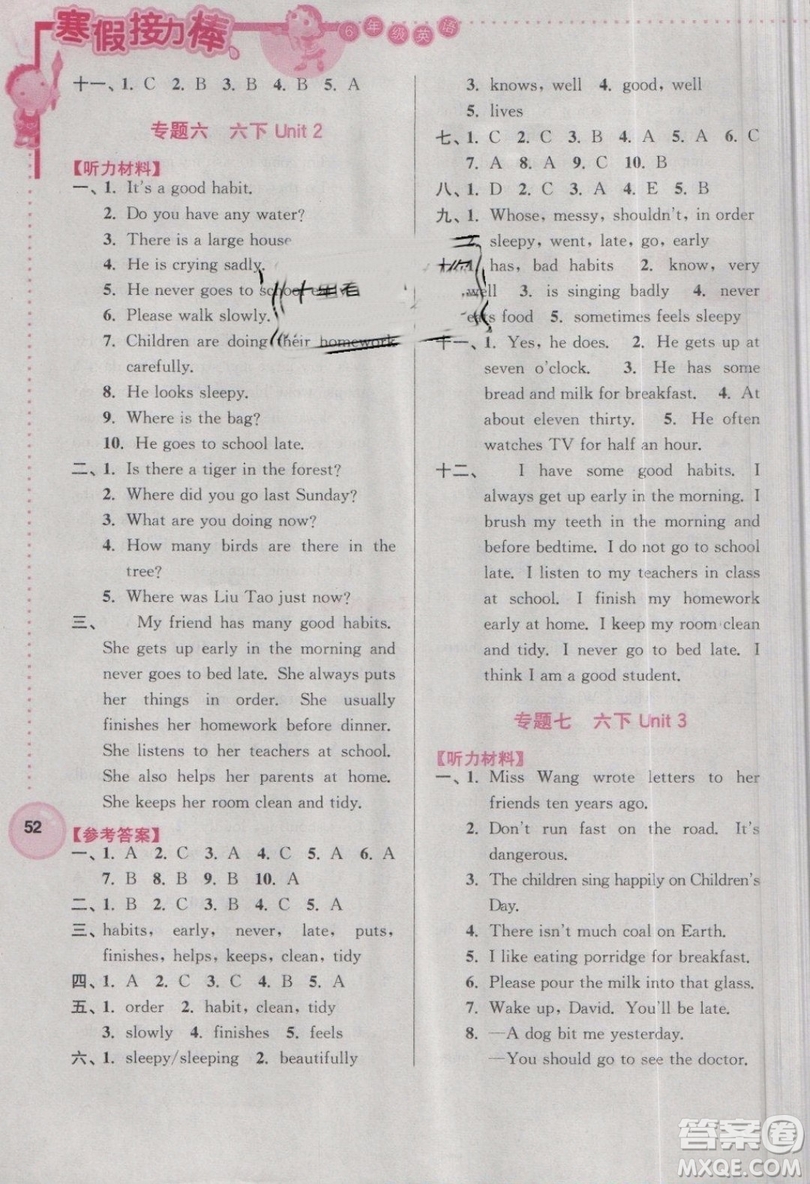 寒假接力棒
6年级英语
十一、1. C 2. B 3. B 4. B 5. A
专题六 六下 Unit 2
【听力材料】
一、1. It's a good habit.
2. Do you have any water?
3. There is a large house
4. He is crying sadly.
5. He never goes to school
6. Please walk slowly.
7. Children are doing their homework
carefully.
8. He looks sleepy.
9. Where is the bag?
10. He goes to school late.
二、1. Is there a tiger in the forest?
2. Where did you go last Sunday?
3. What are you doing now?
4. How many birds are there in the
tree?
5. Where was Liu Tao just now?
三、 My friend has many good habits.
She gets up early in the morning and
never goes to bed late. She always puts
her things in order. She usually
finishes her homework before dinner.
She listens to her teachers at school.
She also helps her parents at home.
She keeps her room clean and tidy.
52
【参考答案】
一、1. A 2. C 3. A 4. C 5. A 6. A
7. B 8. B 9. B 10. A
二、1. B 2. C 3. B 4. C 5. A
三、habits, early, never, late, puts,
finishes, helps, keeps, clean, tidy
四、1. A 2. C 3. C 4. C 5. A
五、1. order 2. habit, clean, tidy
3. slowly 4. finishes 5. feels
六、1. sleepy/sleeping 2. beautifully
3. knows, well 4. good, well
5. lives
七、1. C 2. C 3. B 4. A 5. A 6. C
7. A 8. A 9. C 10. B
八、1. D 2. C 3. A 4. E 5. B
九、1. Whose, messy, shouldn't, in order
sleepy, went, late, go, early
has, bad habits 2. know, very
well 3. is singing badly 4. never
food 5. sometimes feels sleepy
十一、1. Yes, he does. 2. He gets up at
seven o'clock. 3. He has some
bread and milk for breakfast. 4. At
about eleven thirty. 5. He often
watches TV for half an hour.
十二、 I have some good habits. I
always get up early in the morning. I
brush my teeth in the morning and
before bedtime. I don't go to school
late. I listen to my teachers in class
at school. I finish my homework
early at home. I keep my room clean
and tidy. I never go to bed late. I
think I am a good student.
专题七 六下 Unit 3
【听力材料】
一、1. Miss Wang wrote letters to her
friends ten years ago.
2. Don't run fast on the road. It's
dangerous.
3. The children sing happily on Children's
Day.
4. There isn't much coal on Earth.
5. I like eating porridge for breakfast.
6. Please pour the milk into that glass.
7. Wake up, David. You'll be late.
8. —A dog bit me yesterday.
—You should go to see the doctor.
答案圈
MXQE.COM